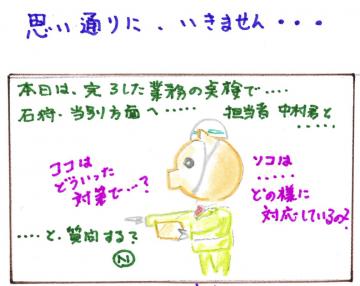 思い通りに、いきません・・・
本日は、完了した業務の点検で・・・・・
石狩・当別方面へ・・・・・ 担当者 中村君と・・・・・
ココは
どういった
対策で・・・?
ソコは
・・・・・
どの様に
対応しているの?
・・・・・と、質問する?
N